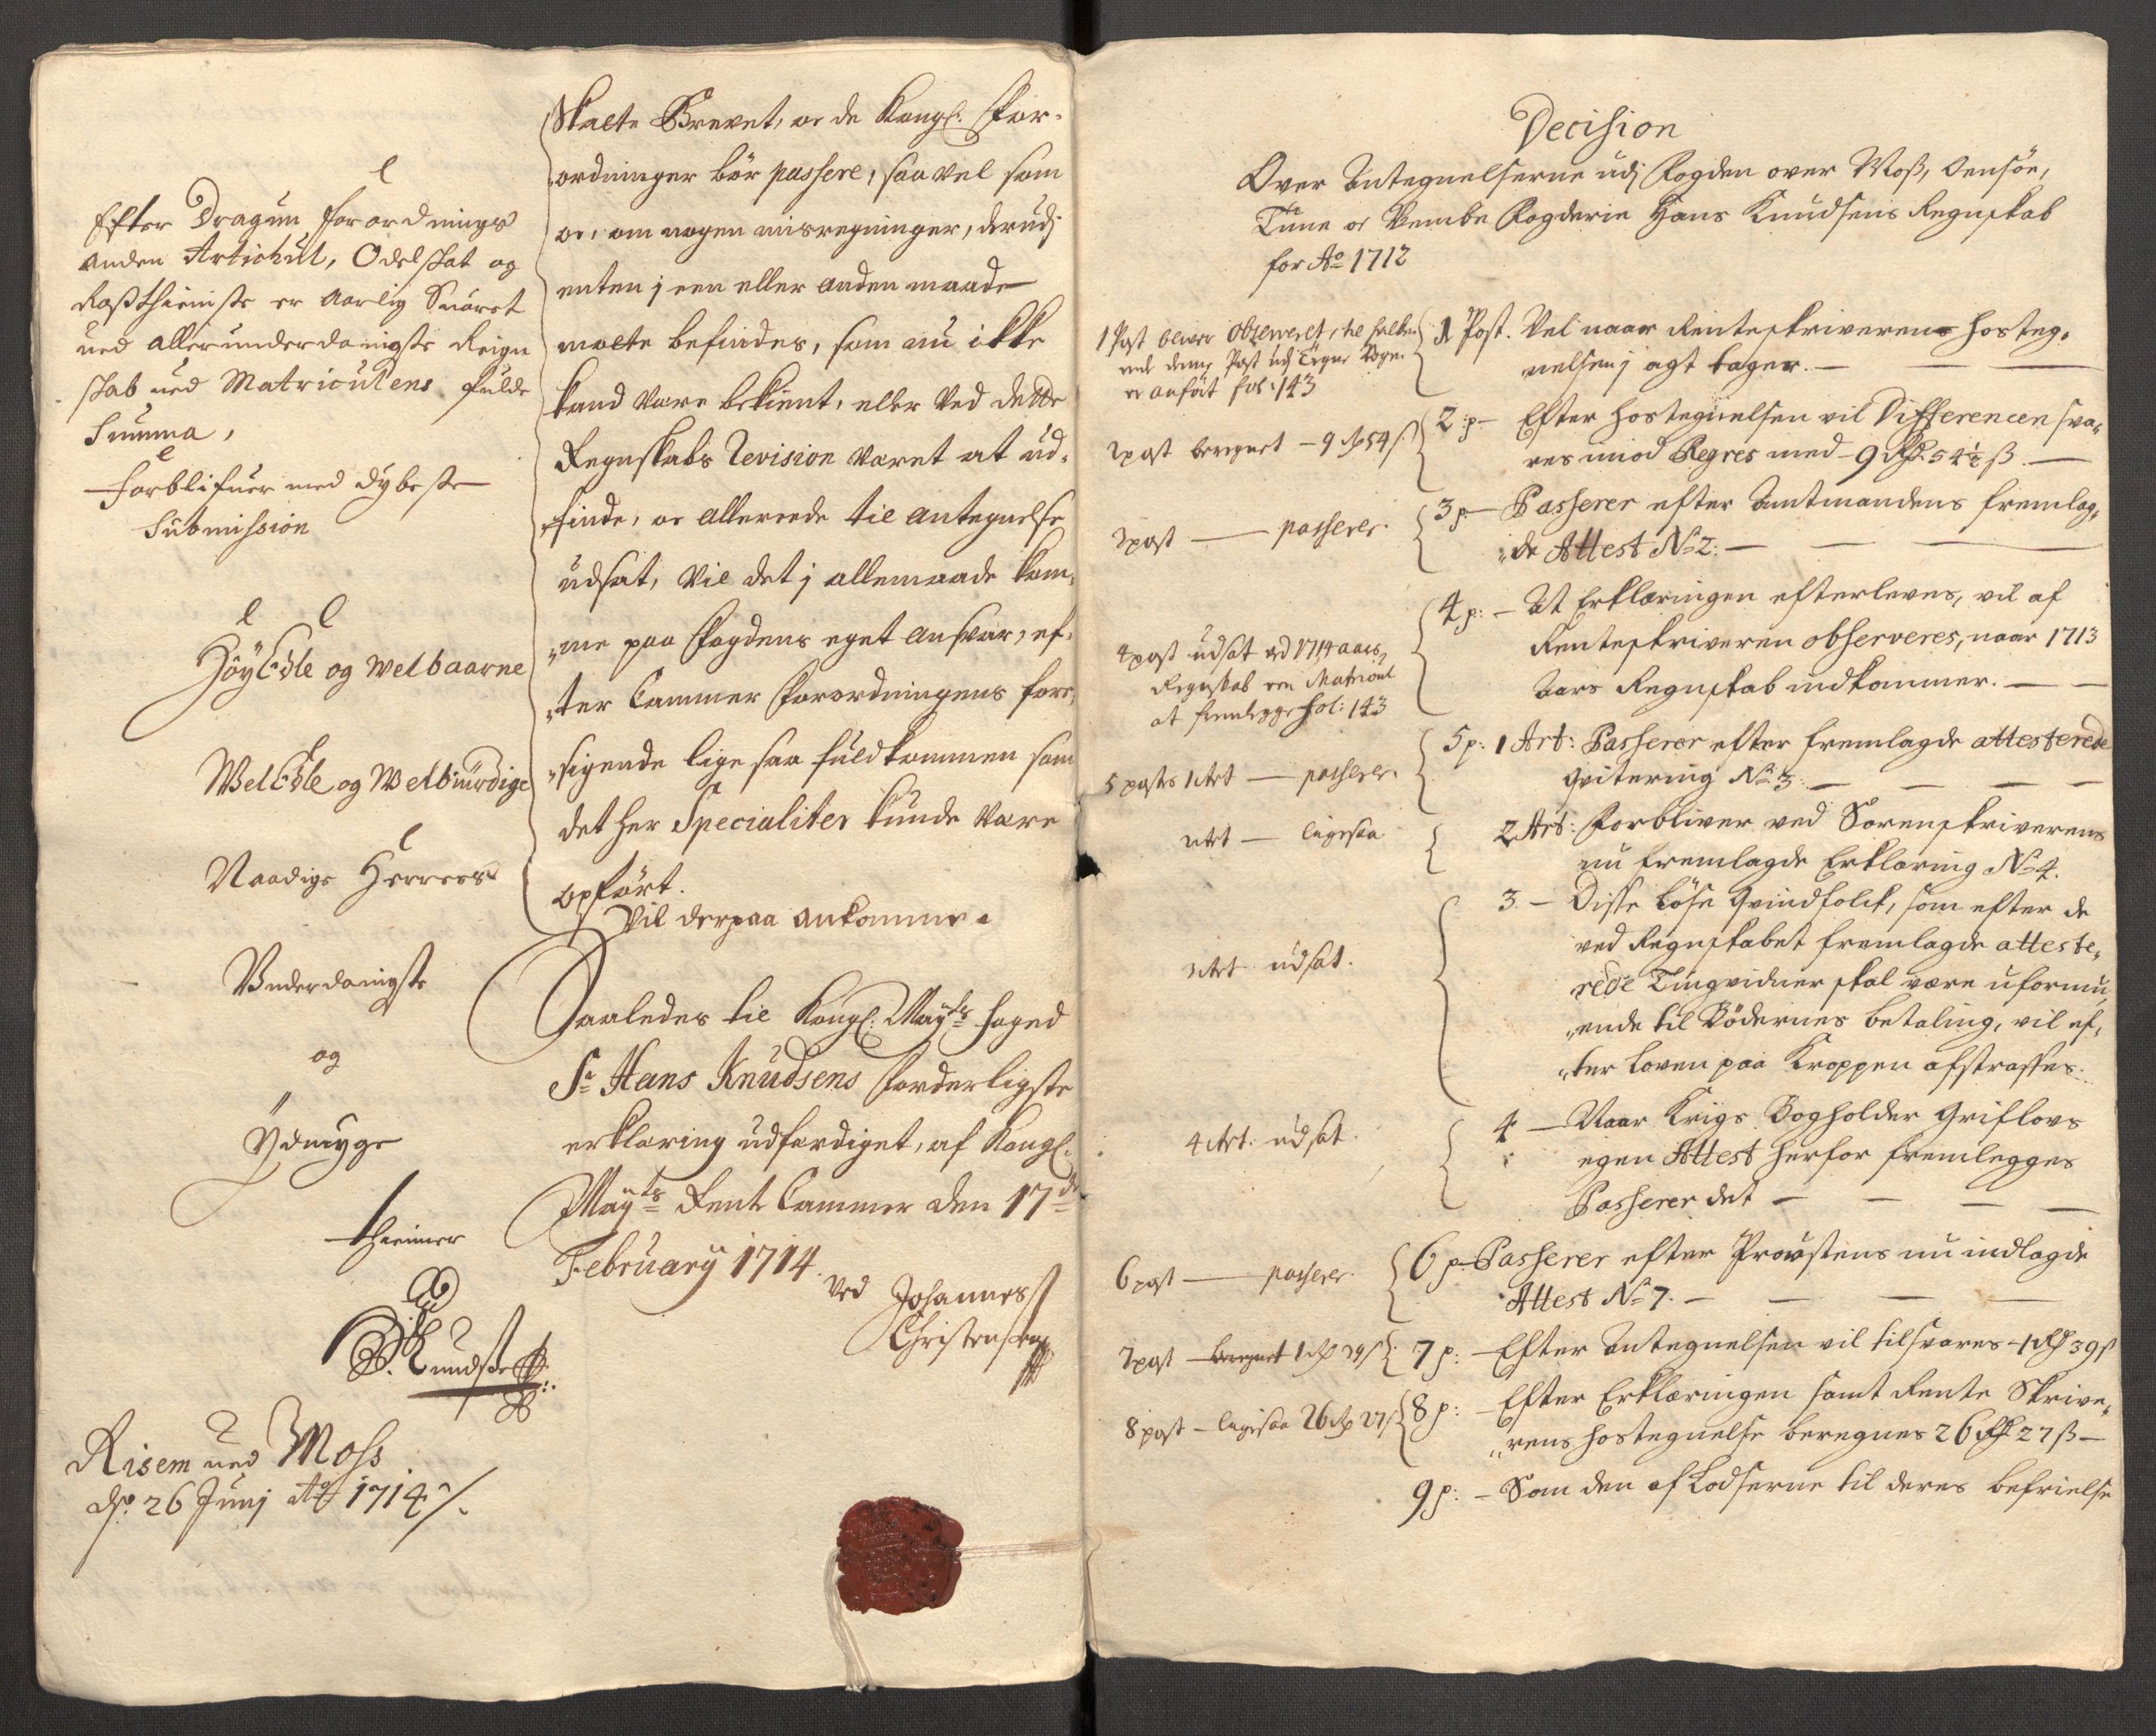 Efter Dragun forordnings
anden Artichul, Odelskat og
Roßthieniste er Aarlig Suaret
ued allerunderdanigste Reign
skab ued Matriculens fulde
Summa,
forblifuer med dybeste
Submission
HöyEdle og Welbaarne
WelEdle og Welbiurdige
Naadige Herrers
Vnderdanigste
og
Ydmyge
thiener
Knudsen
Risem ued Moss
dend 26 Junj Ao 1714
Skatte Brevet, oc de Kongl. For-
ordninger bör passere, saavel som
oc, om nogen misregninger, derudj
enten j een eller anden maade
motte befindes, som nu ikke
kand være bekient, eller Ved dette
Regnskabs Revision været at ud-
finde, oc allereede til antegnelse
udsat, Vil det j allemaade kom-
me paa Fogdens eget ansvar, ef-
ter Cammer Forordningens for-
sigende lige saa fuldkommen som
det her Specialiter kunde være
opfört.
Vil derpaa ankomme.
Saaledes til Kongl: Mayts foged
Sr Hans Knudsens forderligste
erklæring udferdiget, af Kongl.
Mayts Rente Cammer den 17de
February 1714.
Ved Johannes
Christensen
Decision
Over Antegnelserne udj Fogden over Moß, Oensöe,
Tune oc Vembe Fogderie Hans Knudsens Regnskab
for Ao 1712
1 Post bliver observeret,
denne Post udj
er anfört fol: 143
1 Post. Vel naar Renteskriverens hosteg-
nelsen j agt tager.
2 post beregnet - 9 rdr 54 ß
2 p - Efter hostegnelsen vil Differencen sva-
res imod Regres med - 9 Rdr 54½ ß
3 post passerer.
3 p - Passerer efter Amtmandens fremlag-
de Attest No 2.
4 post udsat ved 1714 aars
Regnskab een Matricul
at fremlegge fol: 143
4 p: - At Erklæringen efterleves, vil af
Renteskriveren observeres, naar 1713
Aars Regnskab indkommer.
5 posts 1 Art - passerer.
5 p: 1 Art: Passerer efter fremlagde attesterede
Qvitering No 3.
2 Art - ligesaa
2 Art: Forbliver ved Sorenskriverens
nu fremlagde Erklæring No 4.
3 Art udsat.
3 - Disse löse Qvindfolck, som efter de
ved Regnskabet fremlagde atteste-
rede Tingvidner skal være uformu-
ende til Bödernes betaling, vil ef-
ter Loven paa Kroppen afstraffes.
4 Art: udsat.
4 - Naar Krigs Bogholder Griflovs
egen Attest herfor fremlegges
Passerer det
6 post passerer.
6 p - Passerer efter Provstens nu indlagde
Attest No 7.
7 post beregnet 1 rdr 39 ß
7 p: - Efter Antegnelsen vil tilsvares - 1 Rdr 39 ß
8 post - ligesaa 26 rdr 27 ß
8 p: - Efter Erklæringen samt Rente Skrive-
rens hostegnelse beregnes 26 Rdr 27 ß
9 p: - Som den af Lodserne til deres befrielse